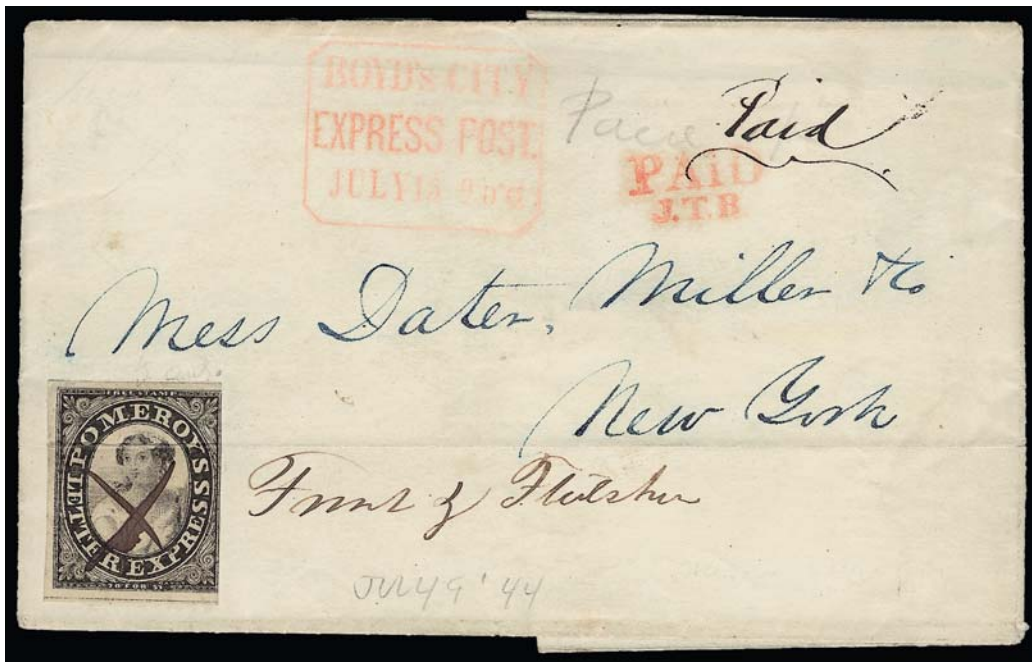 BOYD'S CITY
EXPRESS POST.
JULY 15
Paid
Paid
PAID
J.T.B.
Mess Dater, Miller & Co
New York
FREE STAMP
POMEROY'S
LETTER EXPRESS
20 FOR $1
JULY 9 '44